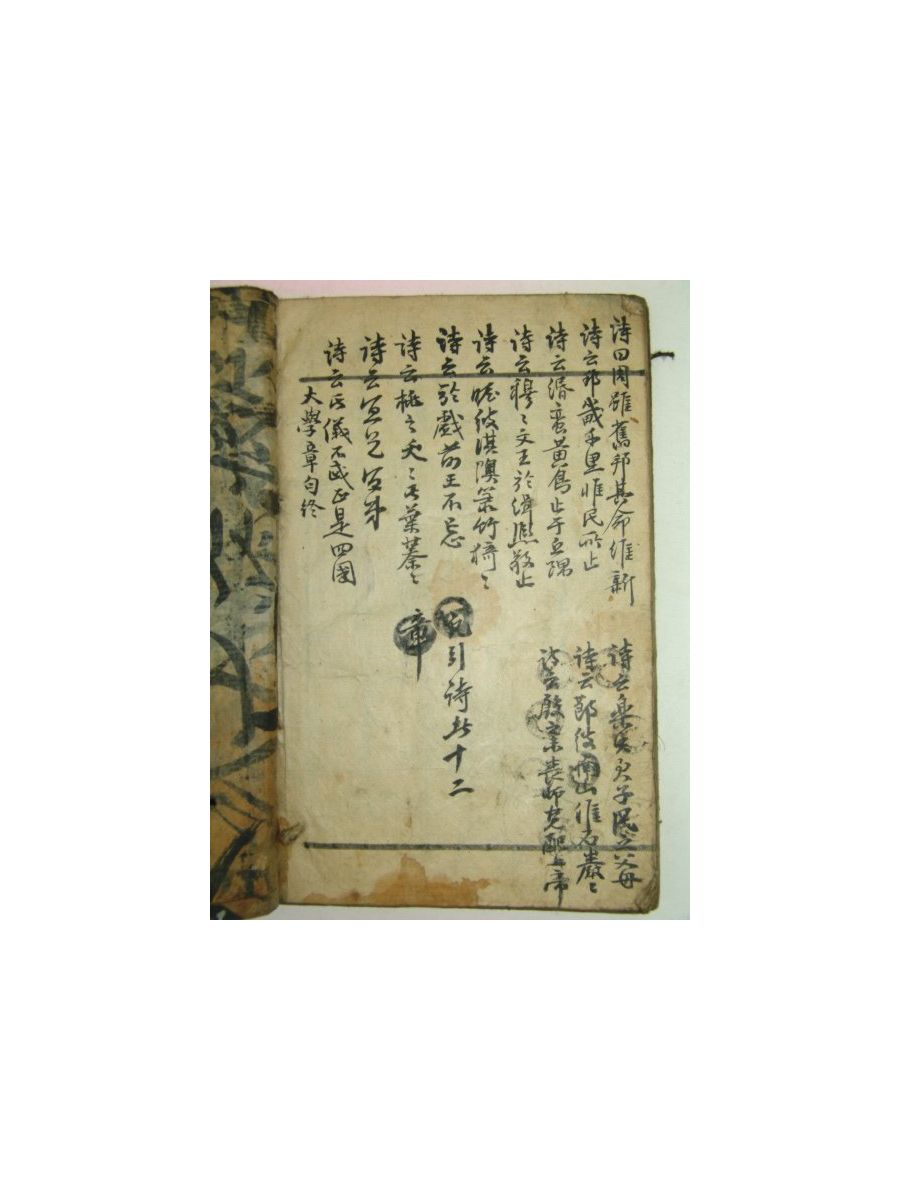 詩曰周雖舊邦其命維新
詩云邦畿千里惟民所止
詩云緡蠻黃鳥止于丘隅
詩云穆〻文王於緝熙敬止
詩云瞻彼淇澳菉竹猗〻
詩云於戲前王不忘
詩云桃之夭〻其葉蓁〻
詩云宜兄宜弟
詩云其儀不忒正是四國
大學章句終
詩云樂只君子民之父母
詩云節彼南山維石巖〻
詩云殷之未喪師克配上帝
引詩共十二
章